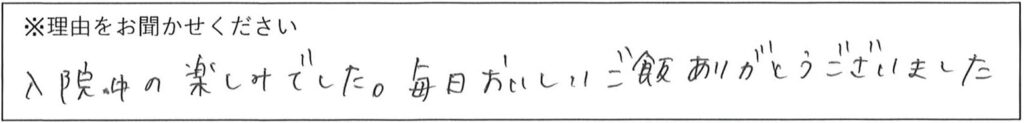 ※理由をお聞かせください
入院中の楽しみでした。毎日おいしいご飯ありがとうございました